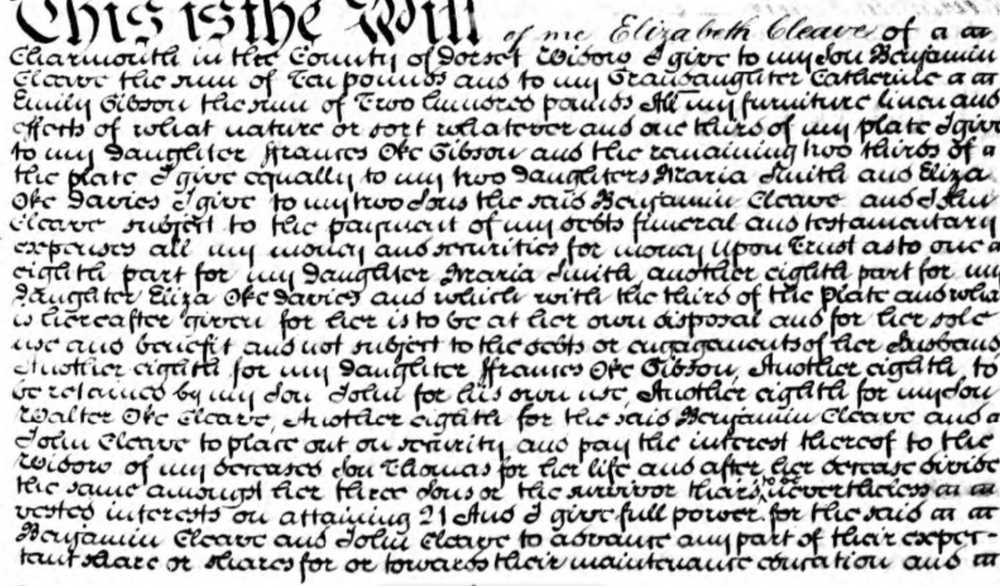 This is the Will of me Elizabeth Cleave of a
Charmouth in the County of Dorset Widow I give to my Son Benjamin
Cleave the sum of Ten pounds and to my Grandaughter Catherine
Emily Gibson the sum of Two hundred pounds All my furniture linen and
effects of what nature or sort whatever and one third of my plate I give
to my daughter ffrances Oke Gibson and the remaining two thirds of
the plate I give equally to my two daughters Maria Smith and Eliza
Oke Davies I give to my two Sons the said Benjamin Cleave and John
Cleave subject to the payment of my debts funeral and testamentary
expenses all my money and securities for money upon Trust as to one
eighth part for my daughter Maria Smith another eighth part for my
daughter Eliza Oke Davies and which with the third of the plate and what
is hereafter given for her is to be at her own disposal and for her sole
use and benefit and not subject to the debts or engagements of her Husband
Another eighth for my daughter ffrances Oke Gibson, Another eighth to
be retained by my Son John for his own use, Another eighth for my Son
Walter Oke Cleave, Another eighth for the said Benjamin Cleave and
John Cleave to place out on security and pay the interest thereof to the
Widow of my deceased Son Thomas for her life and after her decease divide
the same amongst her three Sons or the survivor theirs to be nevertheless
vested interests on attaining 21 And I give full power for the said
Benjamin Cleave and John Cleave to advance any part of their expec-
tant share or shares for or towards their maintenance education and